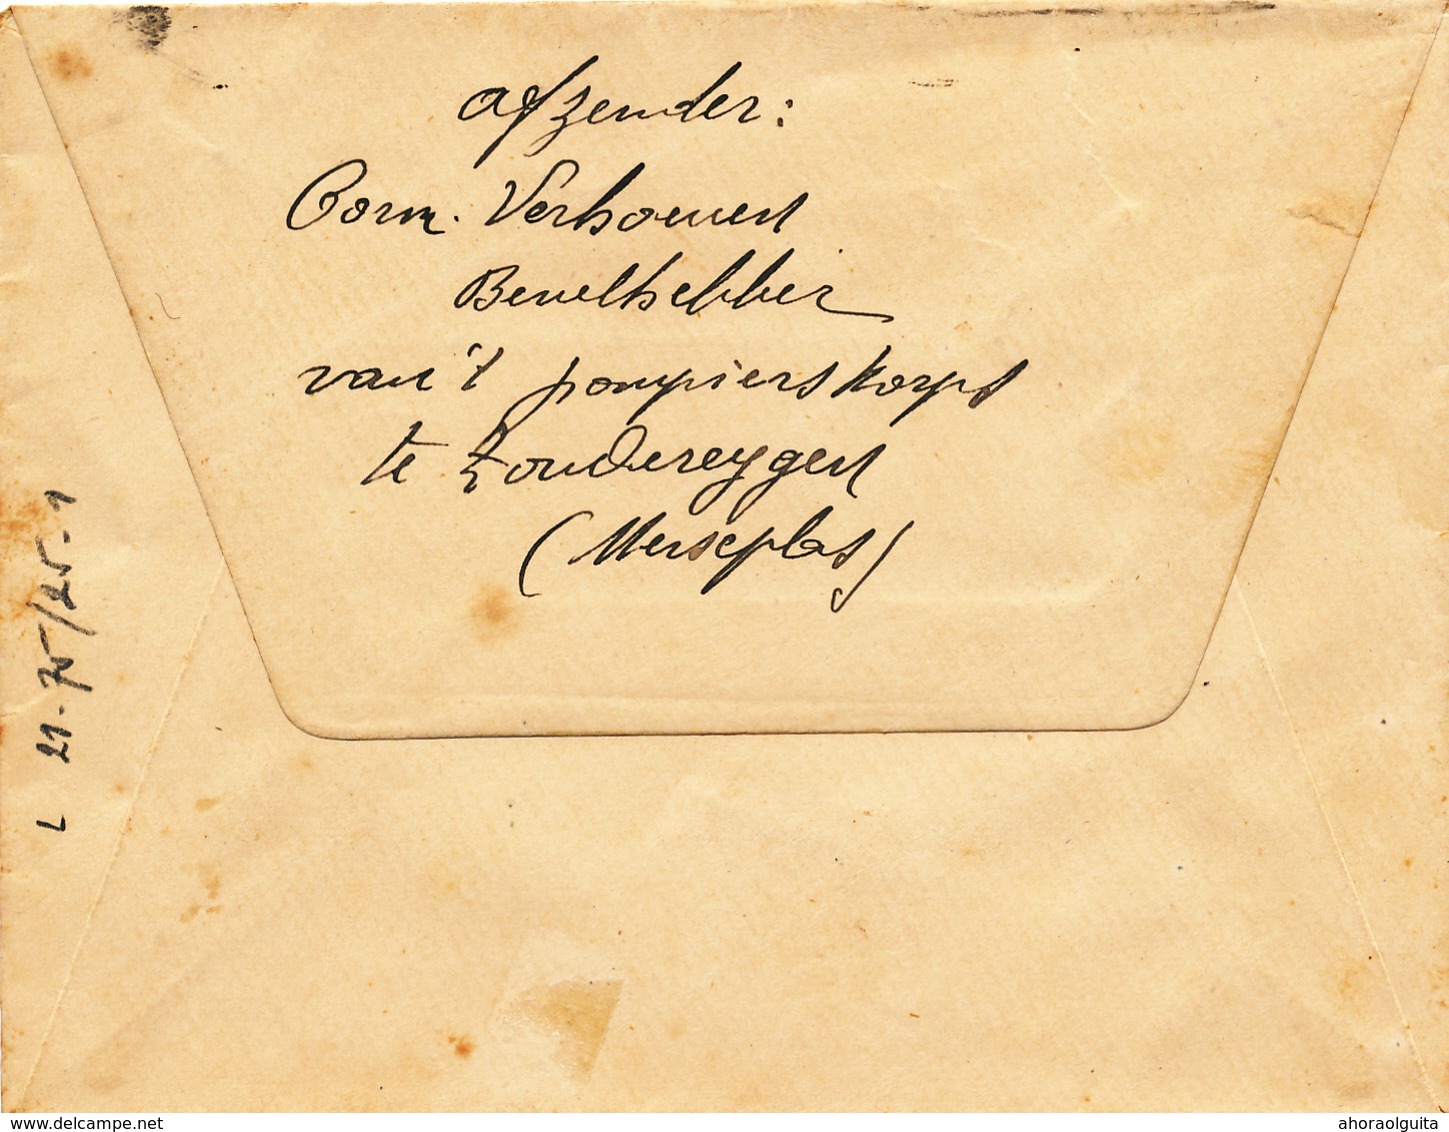 afzender:
Corn. Verhouen
Bevelhebber
van 't pompierskorps
te Zondereygen
(Merseplas)
L 21-75/25-1
www.delcampe.net
ahoraolguita